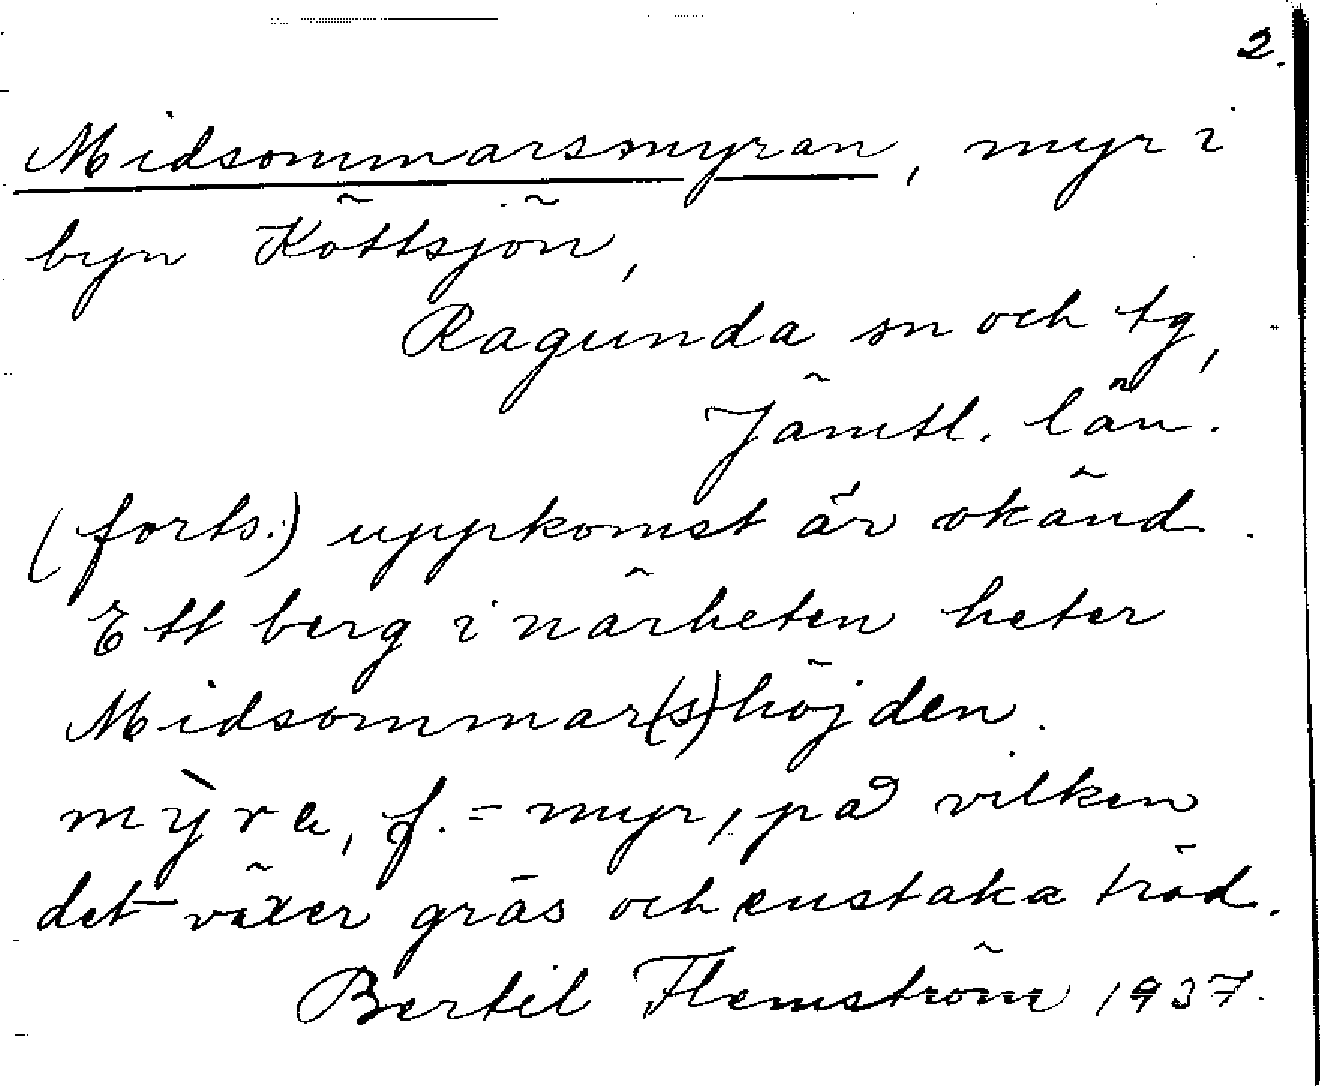 2.
Midsommarsmyran, myr i
byn Köttsjön,
Ragunda sn och tg,
Jämtl. län.
(forts.) uppkomst är okänd.
Ett berg i närheten heter
Midsommar(s)höjden.
mỳra, f. = myr, på vilken
det växer gräs och enstaka träd.
Bertil Flemström 1937.